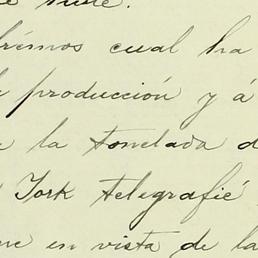 cual ha
producción y á
la tonelada d
York telegrafié
en vista de la